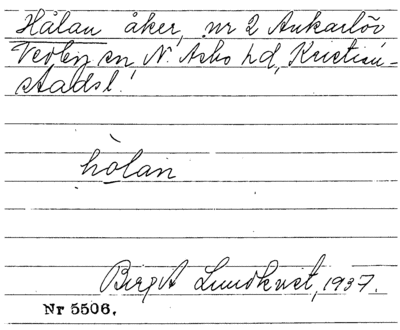 Hålan åker, nr 2 Ankarlöv
Verby sn N. Asbo hd, Kristian-
stads l.
hòlan
Birgit Lundkvist, 1937.
Nr 5506.